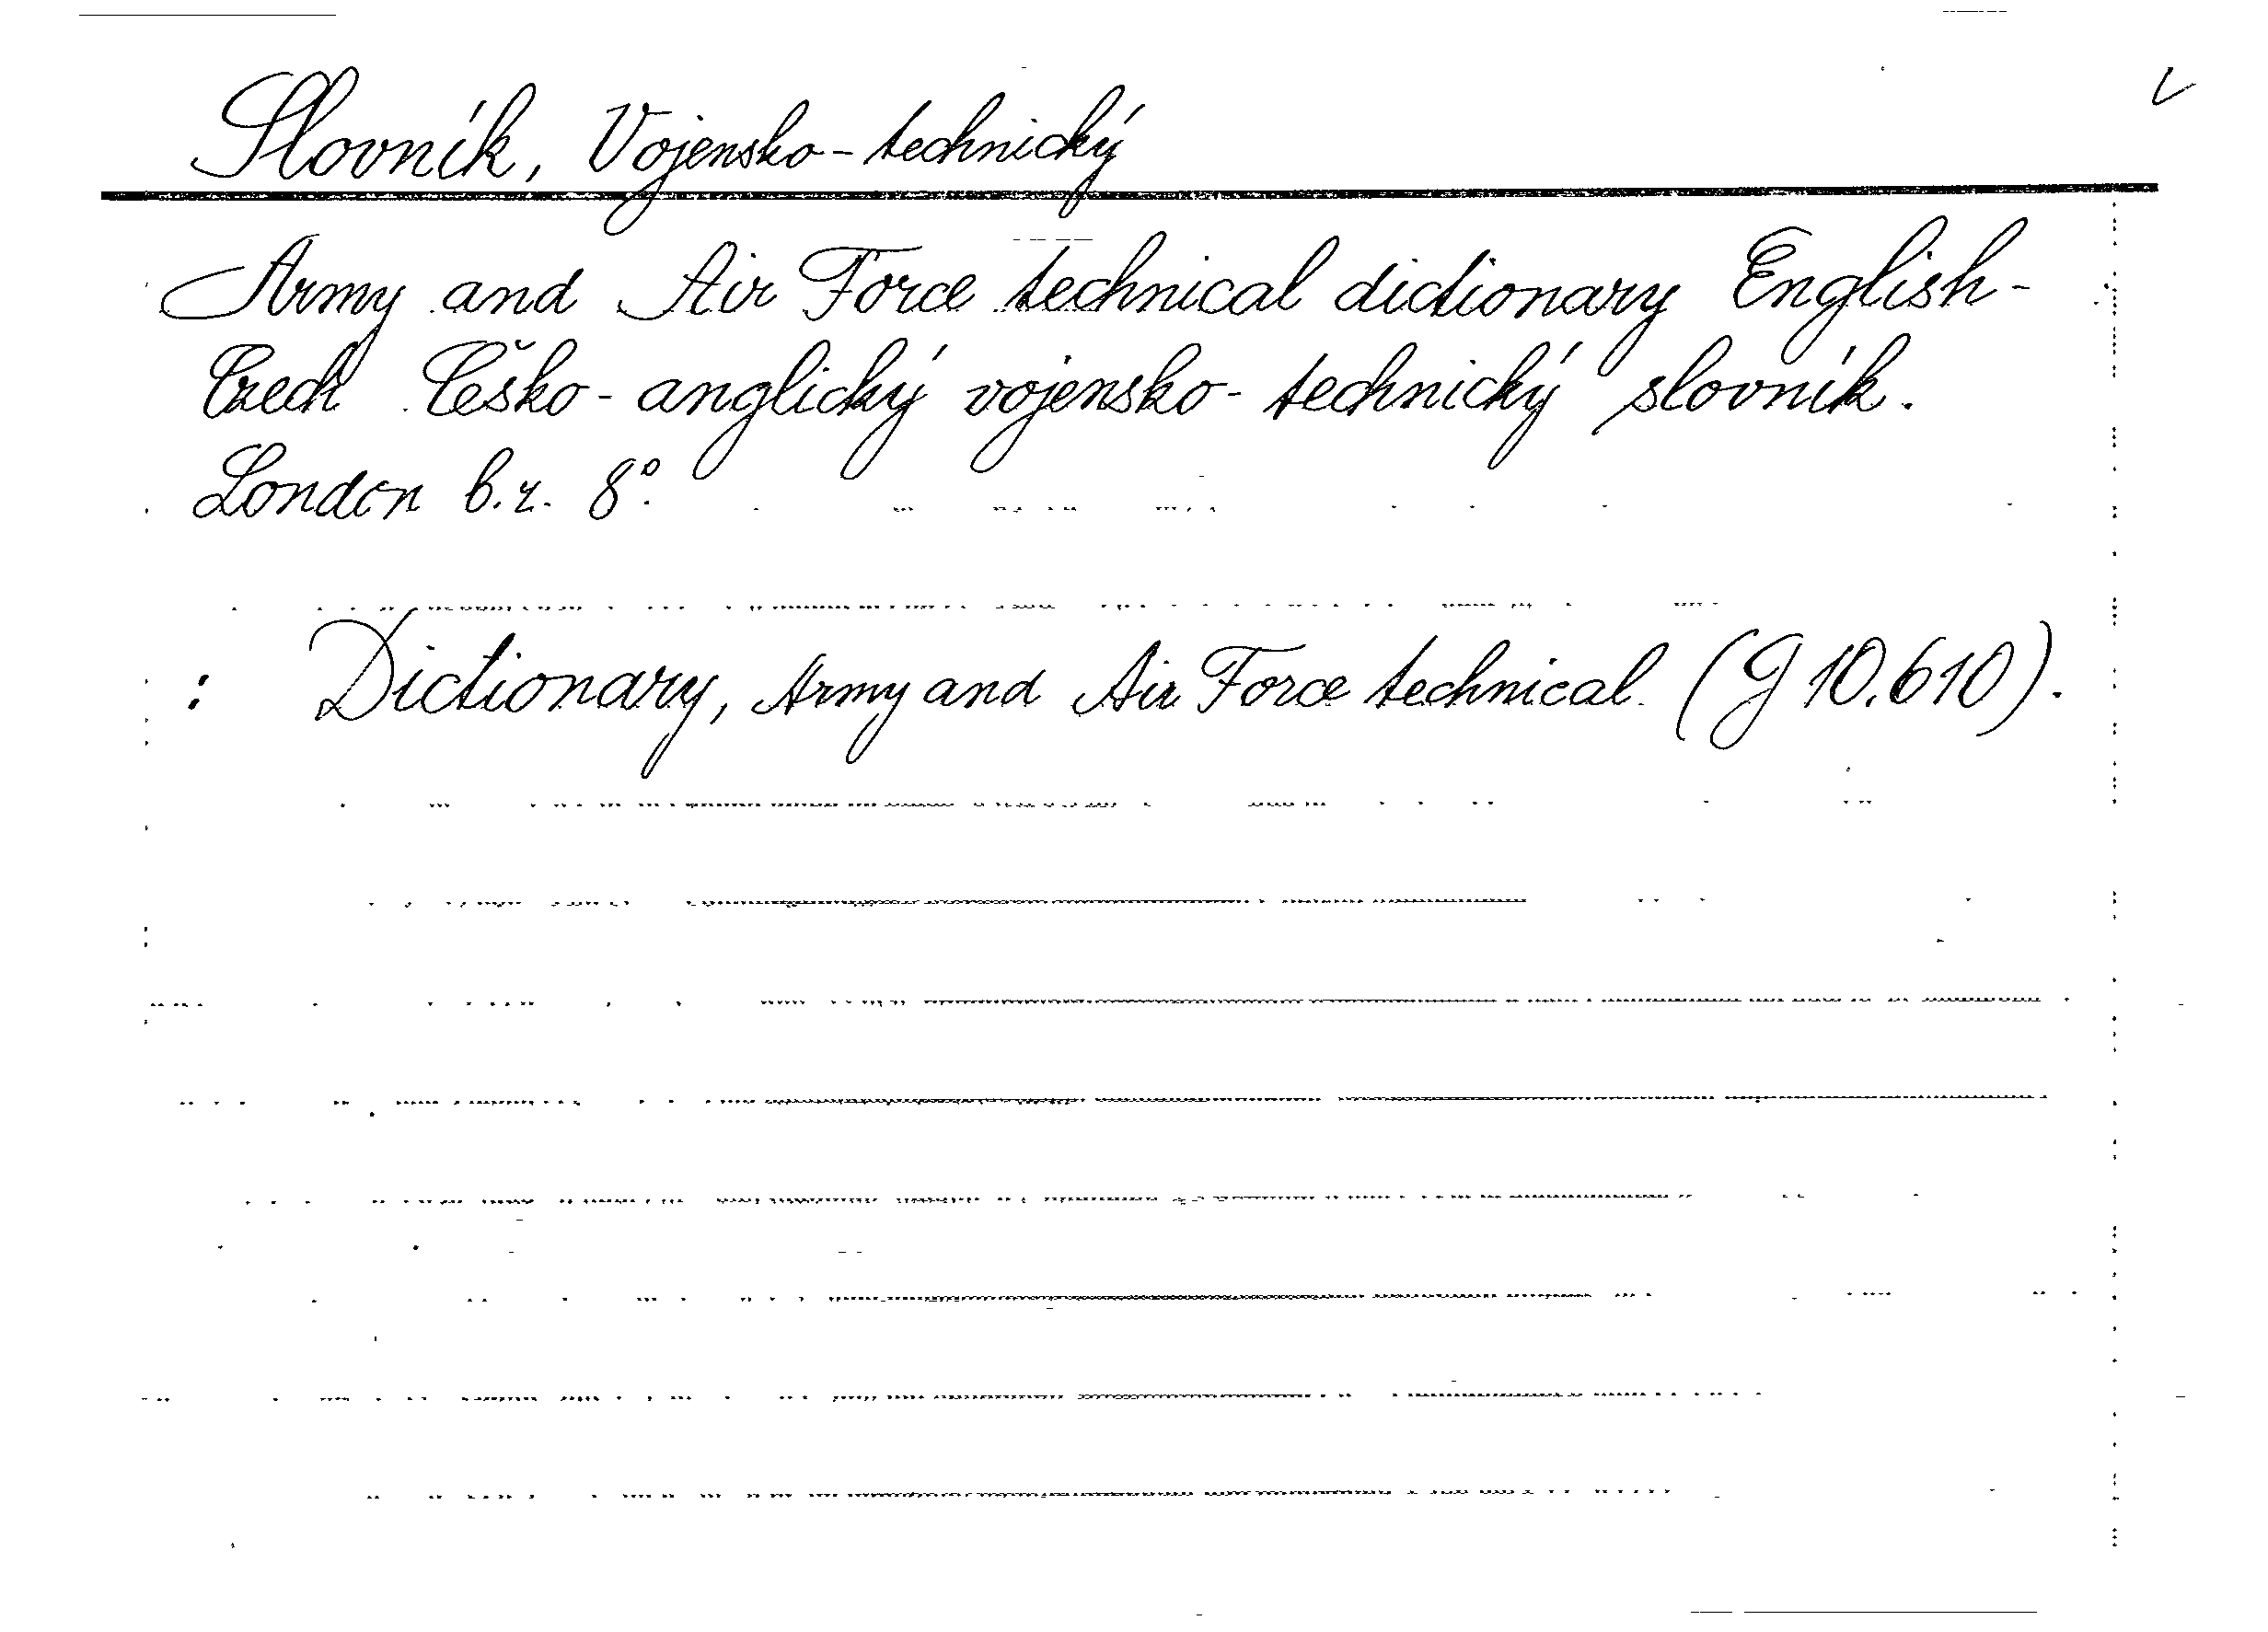 Slovník, Vojensko-technický
Army and Air Force technical dictionary English-
Czech Česko-anglický vojensko-technický slovník.
London b.r. 8°.
: Dictionary, Army and Air Force technical. (G 10.610).